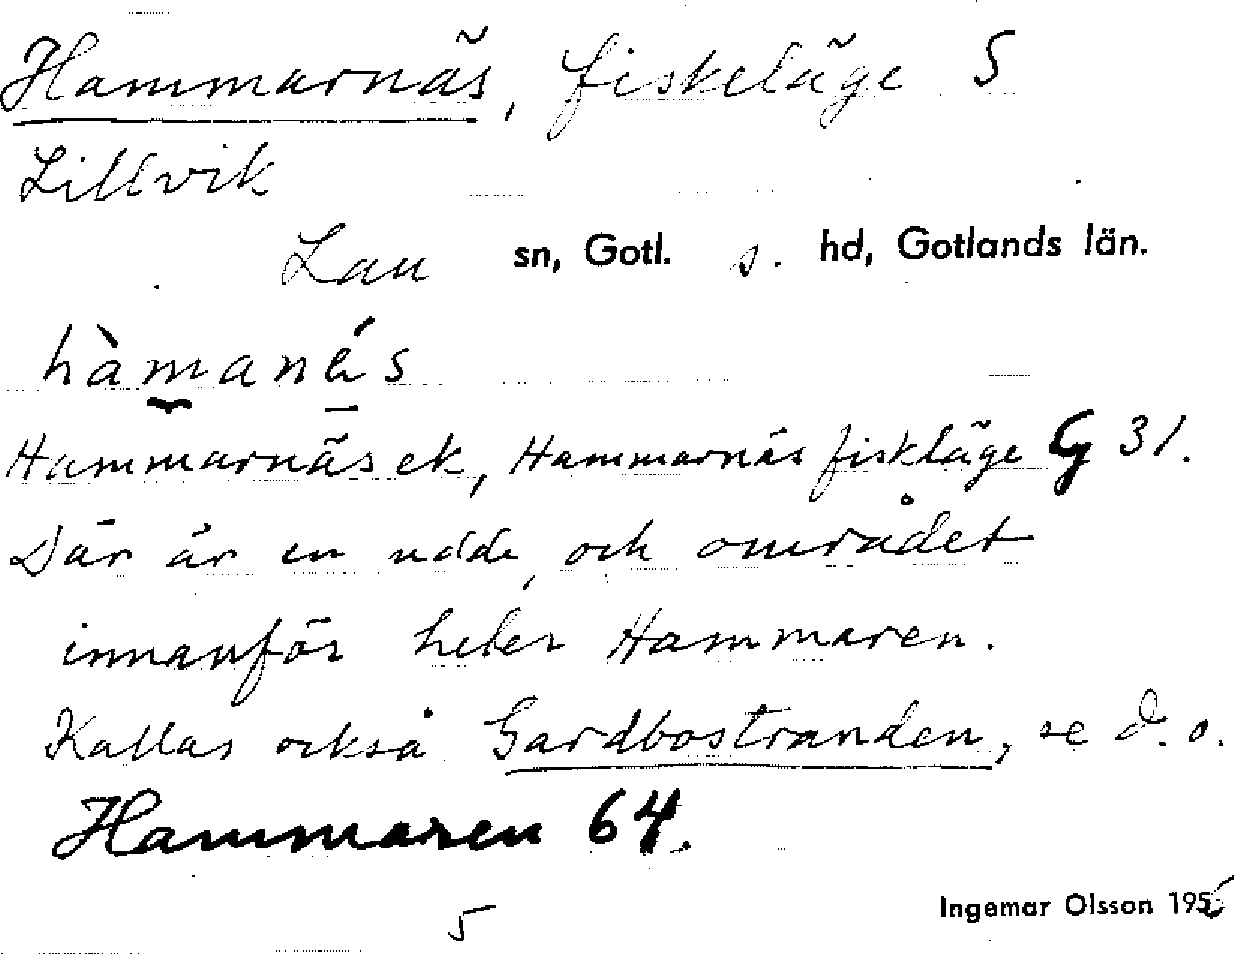 Hammarnäs, fiskeläge S
Lillvik
Lau sn, Gotl. s. hd, Gotlands län.
hàmanés
Hammarnäs ek, Hammarnäs fiskläge G 31.
Där är en udde, och området
innanför heter Hammaren.
Kallas också Gardbostranden, se d. o.
Hammaren 64.
5
Ingemar Olsson 1956